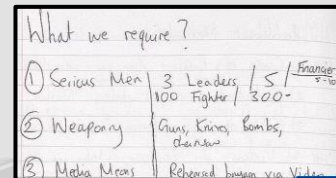 What we require?
① Serious Men 3 Leaders / 5 / Financer 5-10
100 Fighter / 300-
② Weaponry Guns, Knives, Bombs,
③ Media Means Rehearsed via Video